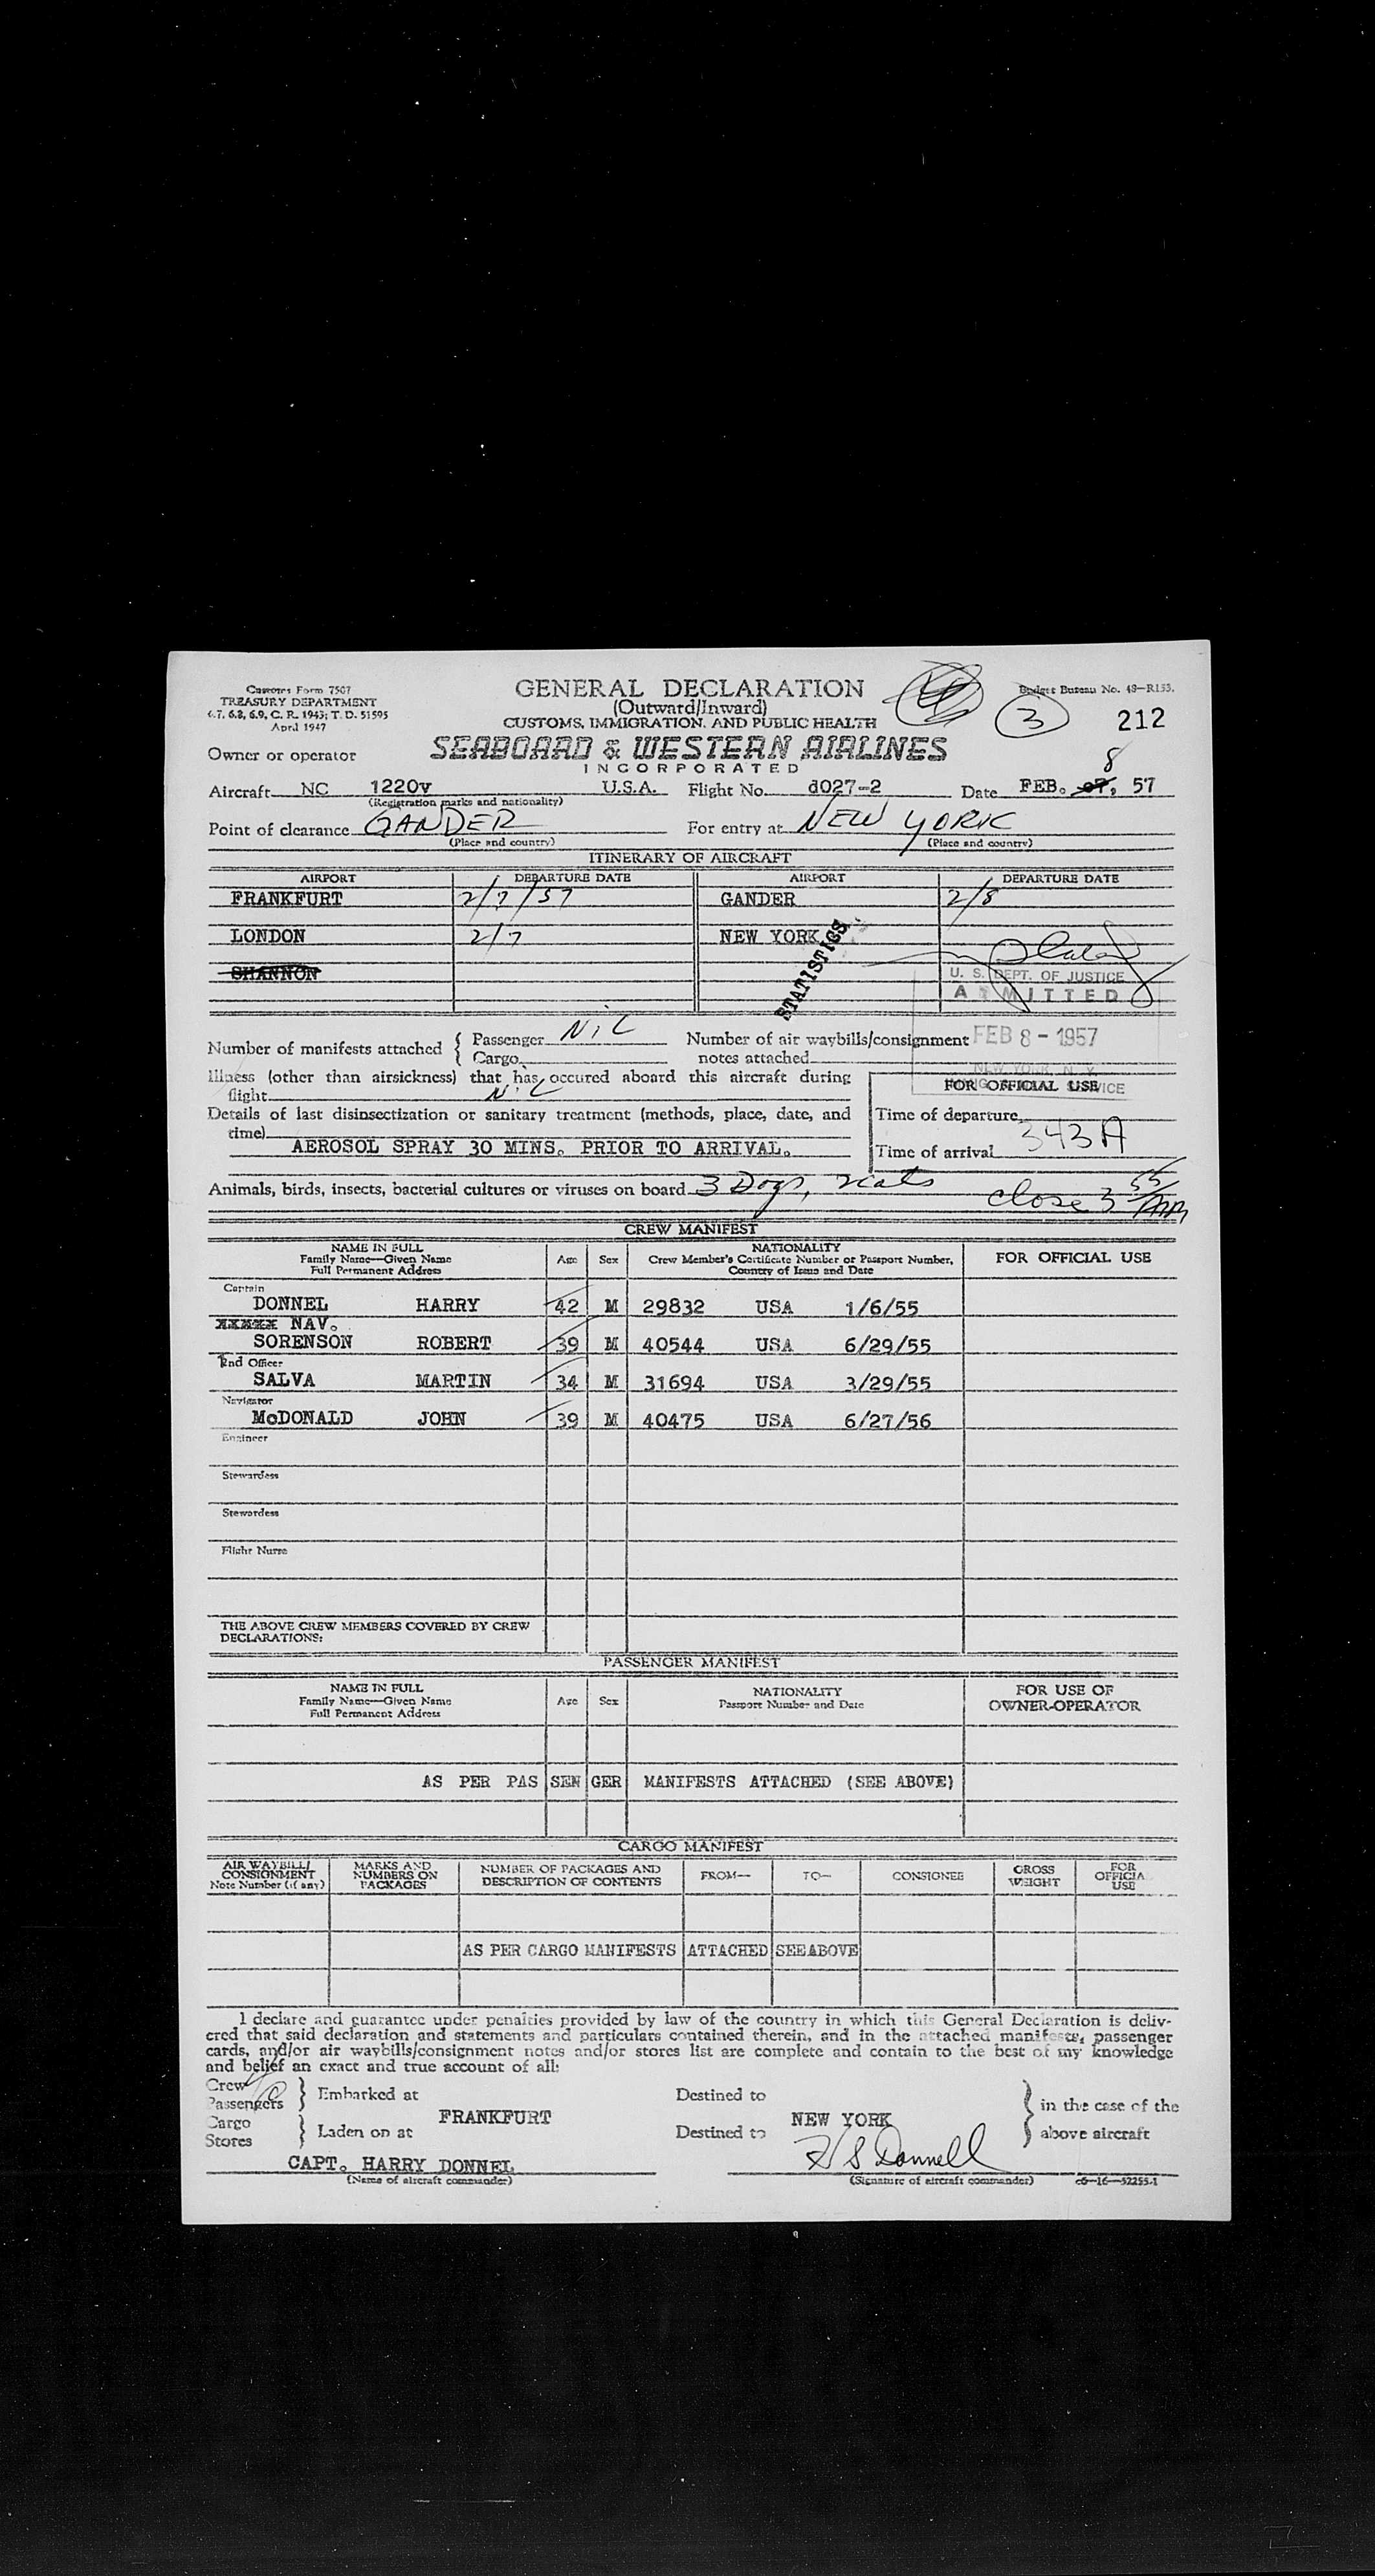 Customs Form 7507
TREASURY DEPARTMENT
6.7, 6.8, 6.9, C. R. 1943; T. D. 51595
April 1947
GENERAL DECLARATION
(Outward/Inward)
CUSTOMS, IMMIGRATION, AND PUBLIC HEALTH
Budget Bureau No. 48-R153.
3
212
Owner or operator SEABOARD & WESTERN AIRLINES
INCORPORATED
8
Aircraft NC 1220v U.S.A. Flight No. d027-2 Date FEB. 07, 57
(Registration marks and nationality)
Point of clearance GANDER For entry at NEW YORK
(Place and country) (Place and country)
ITINERARY OF AIRCRAFT
AIRPORT DEPARTURE DATE AIRPORT DEPARTURE DATE
FRANKFURT 2/7/57 GANDER 2/8
LONDON 2/7 NEW YORK
SHANNON
STATISTICS
U. S. DEPT. OF JUSTICE
ADMITTED
FEB 8 - 1957
NEW YORK, N. Y.
Number of manifests attached { Passenger NiL Number of air waybills/consignment
Cargo notes attached
Illness (other than airsickness) that has occured aboard this aircraft during
flight NiL
FOR OFFICIAL USE
Details of last disinsectization or sanitary treatment (methods, place, date, and
time)
AEROSOL SPRAY 30 MINS. PRIOR TO ARRIVAL.
Time of departure
Time of arrival 343A
Animals, birds, insects, bacterial cultures or viruses on board 3 Dogs, 2 cats
close 3 55/AM
CREW MANIFEST
NAME IN FULL
Family Name—Given Name
Full Permanent Address
Age Sex
NATIONALITY
Crew Member's Certificate Number or Passport Number,
Country of Issue and Date
FOR OFFICIAL USE
Captain
DONNEL HARRY 42 M 29832 USA 1/6/55
xxxxx NAV.
SORENSON ROBERT 39 M 40544 USA 6/29/55
2nd Officer
SALVA MARTIN 34 M 31694 USA 3/29/55
Navigator
McDONALD JOHN 39 M 40475 USA 6/27/56
Engineer
Stewardess
Stewardess
Flight Nurse
THE ABOVE CREW MEMBERS COVERED BY CREW
DECLARATIONS:
PASSENGER MANIFEST
NAME IN FULL
Family Name—Given Name
Full Permanent Address
Age Sex
NATIONALITY
Passport Number and Date
FOR USE OF
OWNER-OPERATOR
AS PER PAS SEN GER MANIFESTS ATTACHED (SEE ABOVE)
CARGO MANIFEST
AIR WAYBILL/
CONSIGNMENT
Note Number (if any)
MARKS AND
NUMBERS ON
PACKAGES
NUMBER OF PACKAGES AND
DESCRIPTION OF CONTENTS
FROM— TO— CONSIGNEE
GROSS
WEIGHT
FOR
OFFICIAL
USE
AS PER CARGO MANIFESTS ATTACHED SEE ABOVE
I declare and guarantee under penalties provided by law of the country in which this General Declaration is deliv-
ered that said declaration and statements and particulars contained therein, and in the attached manifests, passenger
cards, and/or air waybills/consignment notes and/or stores list are complete and contain to the best of my knowledge
and belief an exact and true account of all:
Crew
Passengers } Embarked at Destined to
FRANKFURT NEW YORK
} in the case of the
above aircraft
Cargo
Stores } Laden on at Destined to
CAPT. HARRY DONNEL H S Donnell
(Name of aircraft commander) (Signature of aircraft commander) c6—16—52255-1